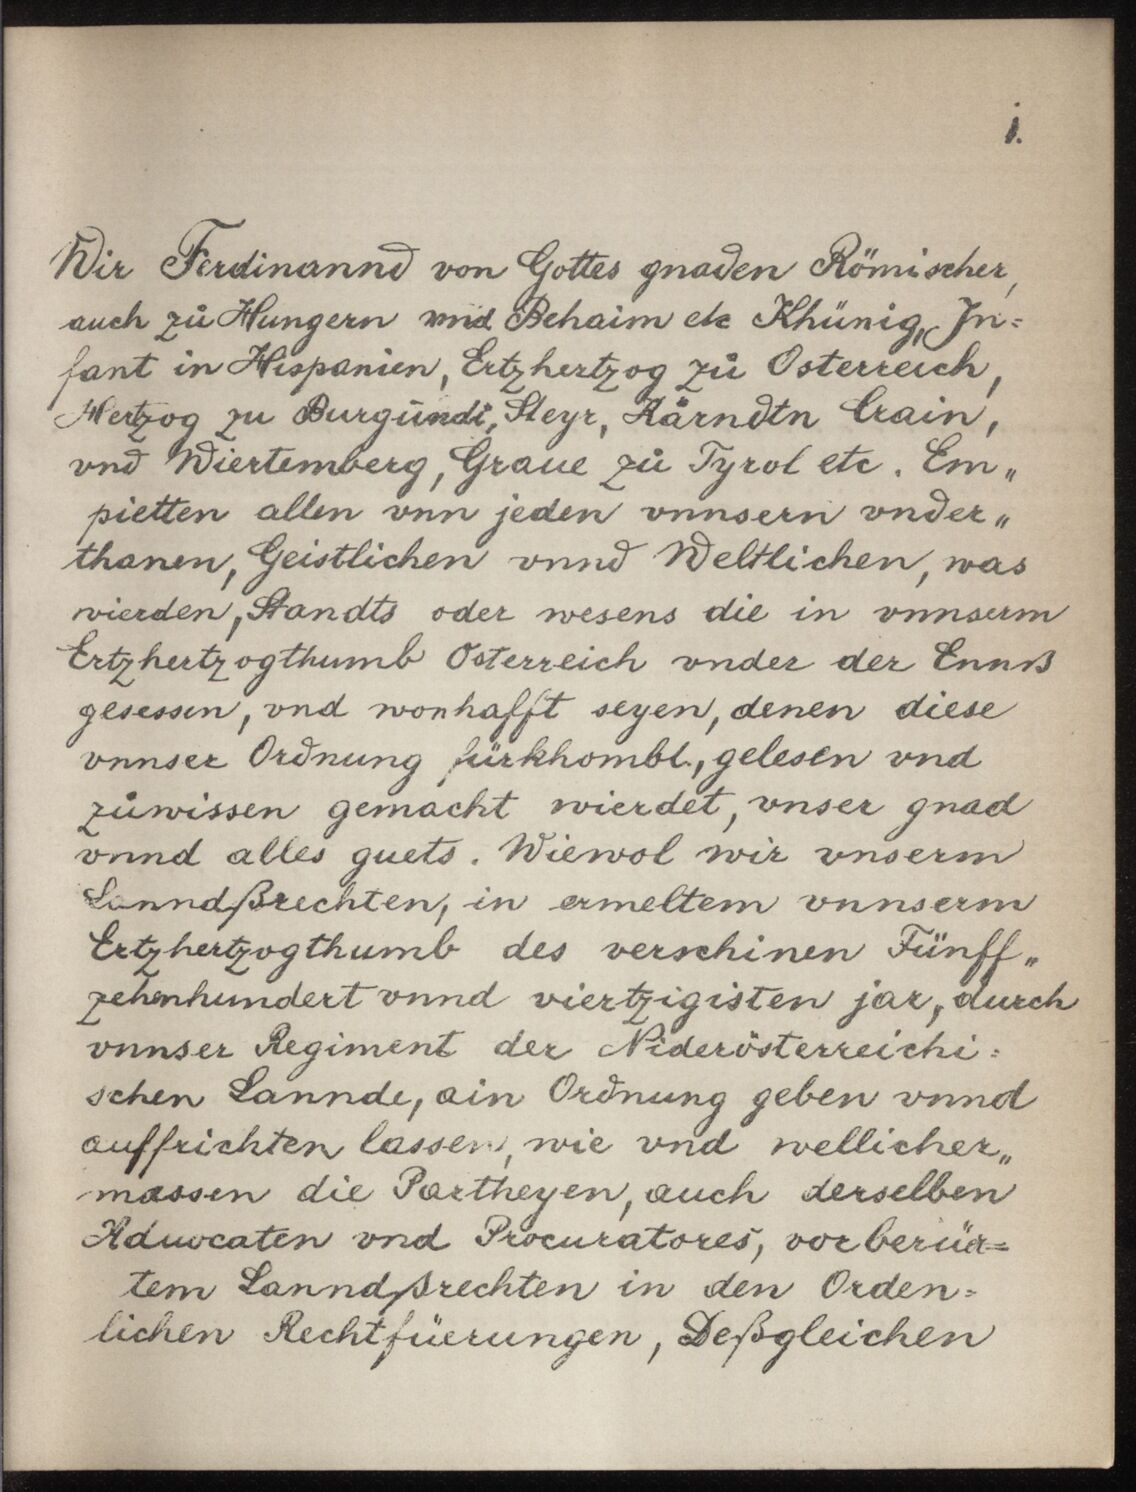 i.
Wir Ferdinannd von Gottes gnaden Römischer,
auch zů Hungern vnd Behaim etc Khünig, In=
fant in Hispanien, Ertzhertzog zů Osterreich,
Hertzog zu Burgundi, Steyr, Kärndtn Crain,
vnd Wiertemberg, Graue zů Tyrol etc. Em„
pietten allen vnn jeden vnnsern vnder„
thanen, Geistlichen vnnd Weltlichen, was
wierden, Standts oder wesens die in vnnserm
Ertzhertzogthumb Osterreich vnder der Ennß
gesessen, vnd wonhafft seyen, denen diese
vnnser Ordnung fürkhombt, gelesen vnd
zůwissen gemacht wierdet, vnser gnad
vnnd alles guets. Wiewol wir vnserm
Lanndßrechten, in ermeltem vnnserm
Ertzhertzogthumb des verschinen Fünff„
zehenhundert vnnd viertzigisten jar, durch
vnnser Regiment der Niderösterreichi=
schen Lannde, ain Ordnung geben vnnd
auffrichten lassen, wie vnd wellicher„
massen die Partheyen, auch derselben
Aduocaten vnd Procuratores, vor berüer=
tem Lanndßrechten in den Orden=
lichen Rechtfüerungen, Deßgleichen